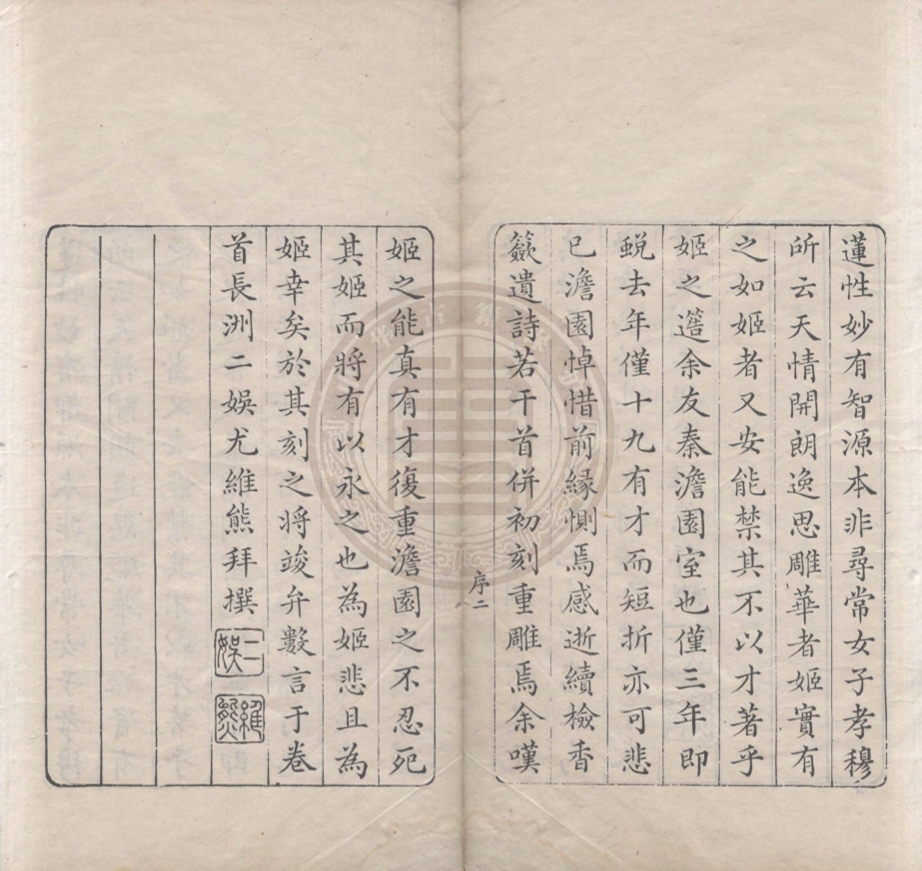 蓮性妙有智源本非尋常女子孝穆
所云天情開朗逸思雕華者姬實有
之如姬者又安能禁其不以才著乎
姬之簉余友秦澹園室也僅三年即
蛻去年僅十九有才而短折亦可悲
已澹園悼惜前緣惻焉感逝續檢香
籢遺詩若干首併初刻重雕焉余嘆
序二
姬之能真有才復重澹園之不忍死
其姬而將有以永之也為姬悲且為
姬幸矣於其刻之將竣弁數言于卷
首長洲二娛尤維熊拜撰
二娛
維熊